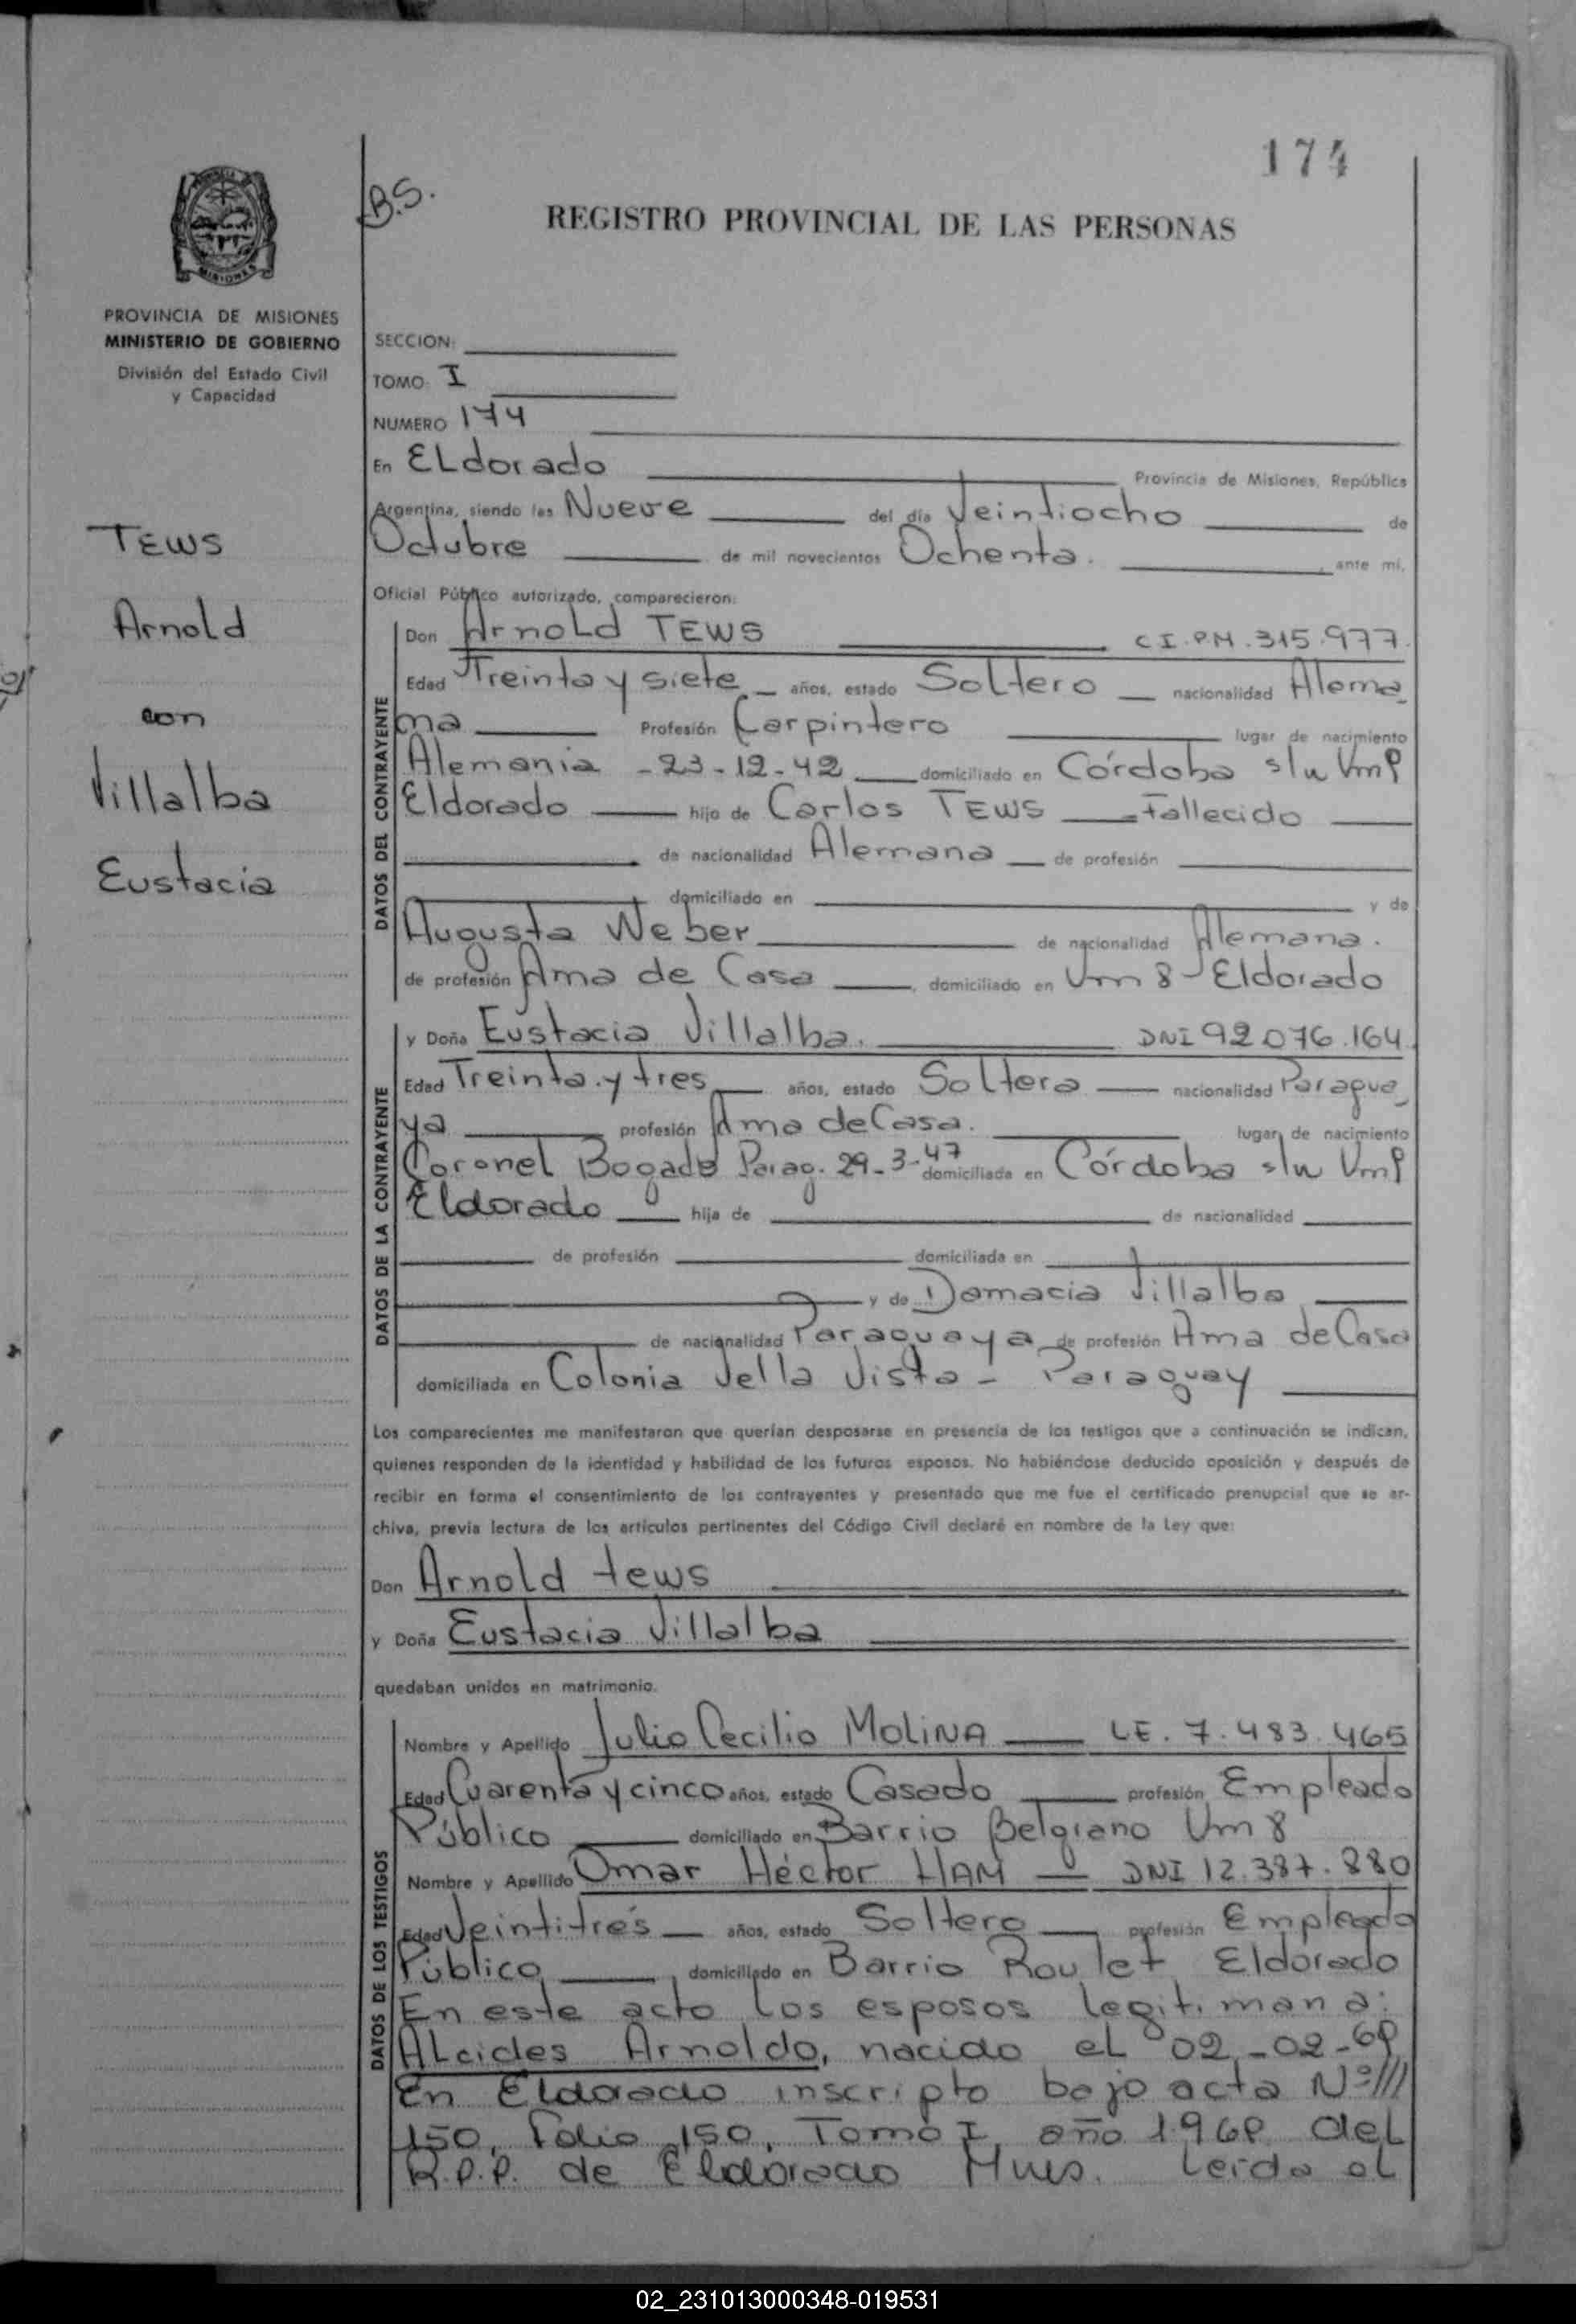 174
B.S.
REGISTRO PROVINCIAL DE LAS PERSONAS
MISIONES
PROVINCIA DE MISIONES
MINISTERIO DE GOBIERNO
División del Estado Civil
y Capacidad
SECCION:
TOMO: I
NUMERO 174
En ELdorado Provincia de Misiones, República
Argentina, siendo las Nueve del día Veintiocho de
Octubre de mil novecientos Ochenta. ante mí,
Oficial Público autorizado, comparecieron:
TEWS
Arnold
con
Villalba
Eustacia
DATOS DEL CONTRAYENTE
Don Arnold TEWS C I. P.M. 315.977.
Edad Treinta y siete años, estado Soltero nacionalidad Alema
na Profesión Carpintero lugar de nacimiento
Alemania - 23-12-42 domiciliado en Córdoba s/n
Eldorado hijo de Carlos TEWS - Fallecido
de nacionalidad Alemana de profesión
domiciliado en y de
Augusta Weber de nacionalidad Alemana.
de profesión Ama de Casa domiciliado en Km 8 - Eldorado
DATOS DE LA CONTRAYENTE
y Doña Eustacia Villalba. DNI 92.076.164.
Edad Treinta y tres años, estado Soltera nacionalidad Paragua_
ya profesión Ama de Casa. lugar de nacimiento
Coronel Bogado Parag. 29-3-47 domiciliada en Córdoba s/n
Eldorado hija de de nacionalidad
de profesión domiciliada en
y de Damacia Villalba
de nacionalidad Paraguaya de profesión Ama de Casa
domiciliada en Colonia Vella Vista - Paraguay
Los comparecientes me manifestaron que querían desposarse en presencia de los testigos que a continuación se indican,
quienes responden de la identidad y habilidad de los futuros esposos. No habiéndose deducido oposición y después de
recibir en forma el consentimiento de los contrayentes y presentado que me fue el certificado prenupcial que se ar-
chiva, previa lectura de los artículos pertinentes del Código Civil declaré en nombre de la Ley que:
Don Arnold tews
y Doña Eustacia Villalba
quedaban unidos en matrimonio.
DATOS DE LOS TESTIGOS
Nombre y Apellido Julio Cecilio MOLINA LE. 7.483.465
Edad Cuarenta y cinco años, estado Casado profesión Empleado
Público domiciliado en Barrio Belgrano Km 8
Nombre y Apellido Omar Héctor HAM DNI 12.387.880
Edad Veintitrés años, estado Soltero profesión Empleado
Público domiciliado en Barrio Roulet Eldorado
En este acto los esposos legitiman a:
ALcides Arnoldo, nacido eL 02-02-69
En Eldorado inscripto bajo acta Nº///
150, Folio 150, Tomo I, año 1969 del
R.P.P. de Eldorado Mnes. Leida eL
02_231013000348-019531